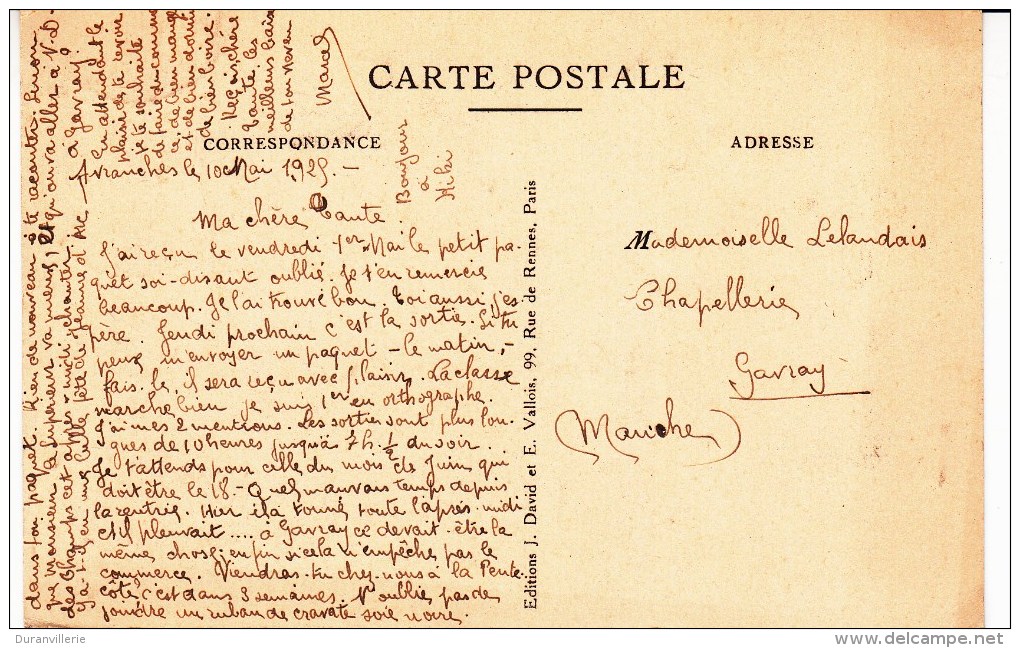 CARTE POSTALE
CORRESPONDANCE
ADRESSE
Avranches le 10 Mai 1925. -
Ma chère Tante.
J'ai reçu le vendredi 1er Mai le petit pa-
quet soi-disant oublié. Je t'en remercie
beaucoup. Je l'ai trouvé bon. Toi aussi, j'es-
père. Jeudi prochain c'est la sortie. Si tu
peux m'envoyer un paquet - le matin, -
fais-le, il sera reçu avec plaisir. La classe
marche bien je suis 1er en orthographe.
J'ai mes 2 mentions. Les sorties sont plus lon-
gues de 10 heures jusqu'à 7h. 1/2 du soir.
Je t'attends pour celle du mois de Juin qui
doit être le 18. - Quel mauvais temps depuis
la rentrée. Hier il a tonné toute l'après-midi
et il pleuvait .... à Gavray ce devait être la
même chose; enfin si cela n'empêche pas le
commerce. Viendras-tu chez nous à la Pente-
côte, c'est dans 3 semaines. N'oublie pas de
joindre un ruban de cravate soie noire.
dans ton paquet. Rien de nouveau à te raconter. Sinon
que Monsieur le Supérieur va mieux, et qu'on va aller à N.D.
des Champs cet après-midi chanter
Y a-t-il eu une belle fête de Jeanne d'Arc à Gavray?
En attendant le
plaisir de te revoir
je te souhaite
de faire du commer
ce, de bien manger
et de bien dormir
de bien boire.
Reçois chère
Tante les
meilleurs bais
de ton neveu
Marcel
Bonjour
à
Kiki
Editions J. David et E. Vallois, 99, Rue de Rennes, Paris
Mademoiselle Lelandais
Chapellerie
Gavray
(Manche)
Duranvillerie
www.delcampe.net